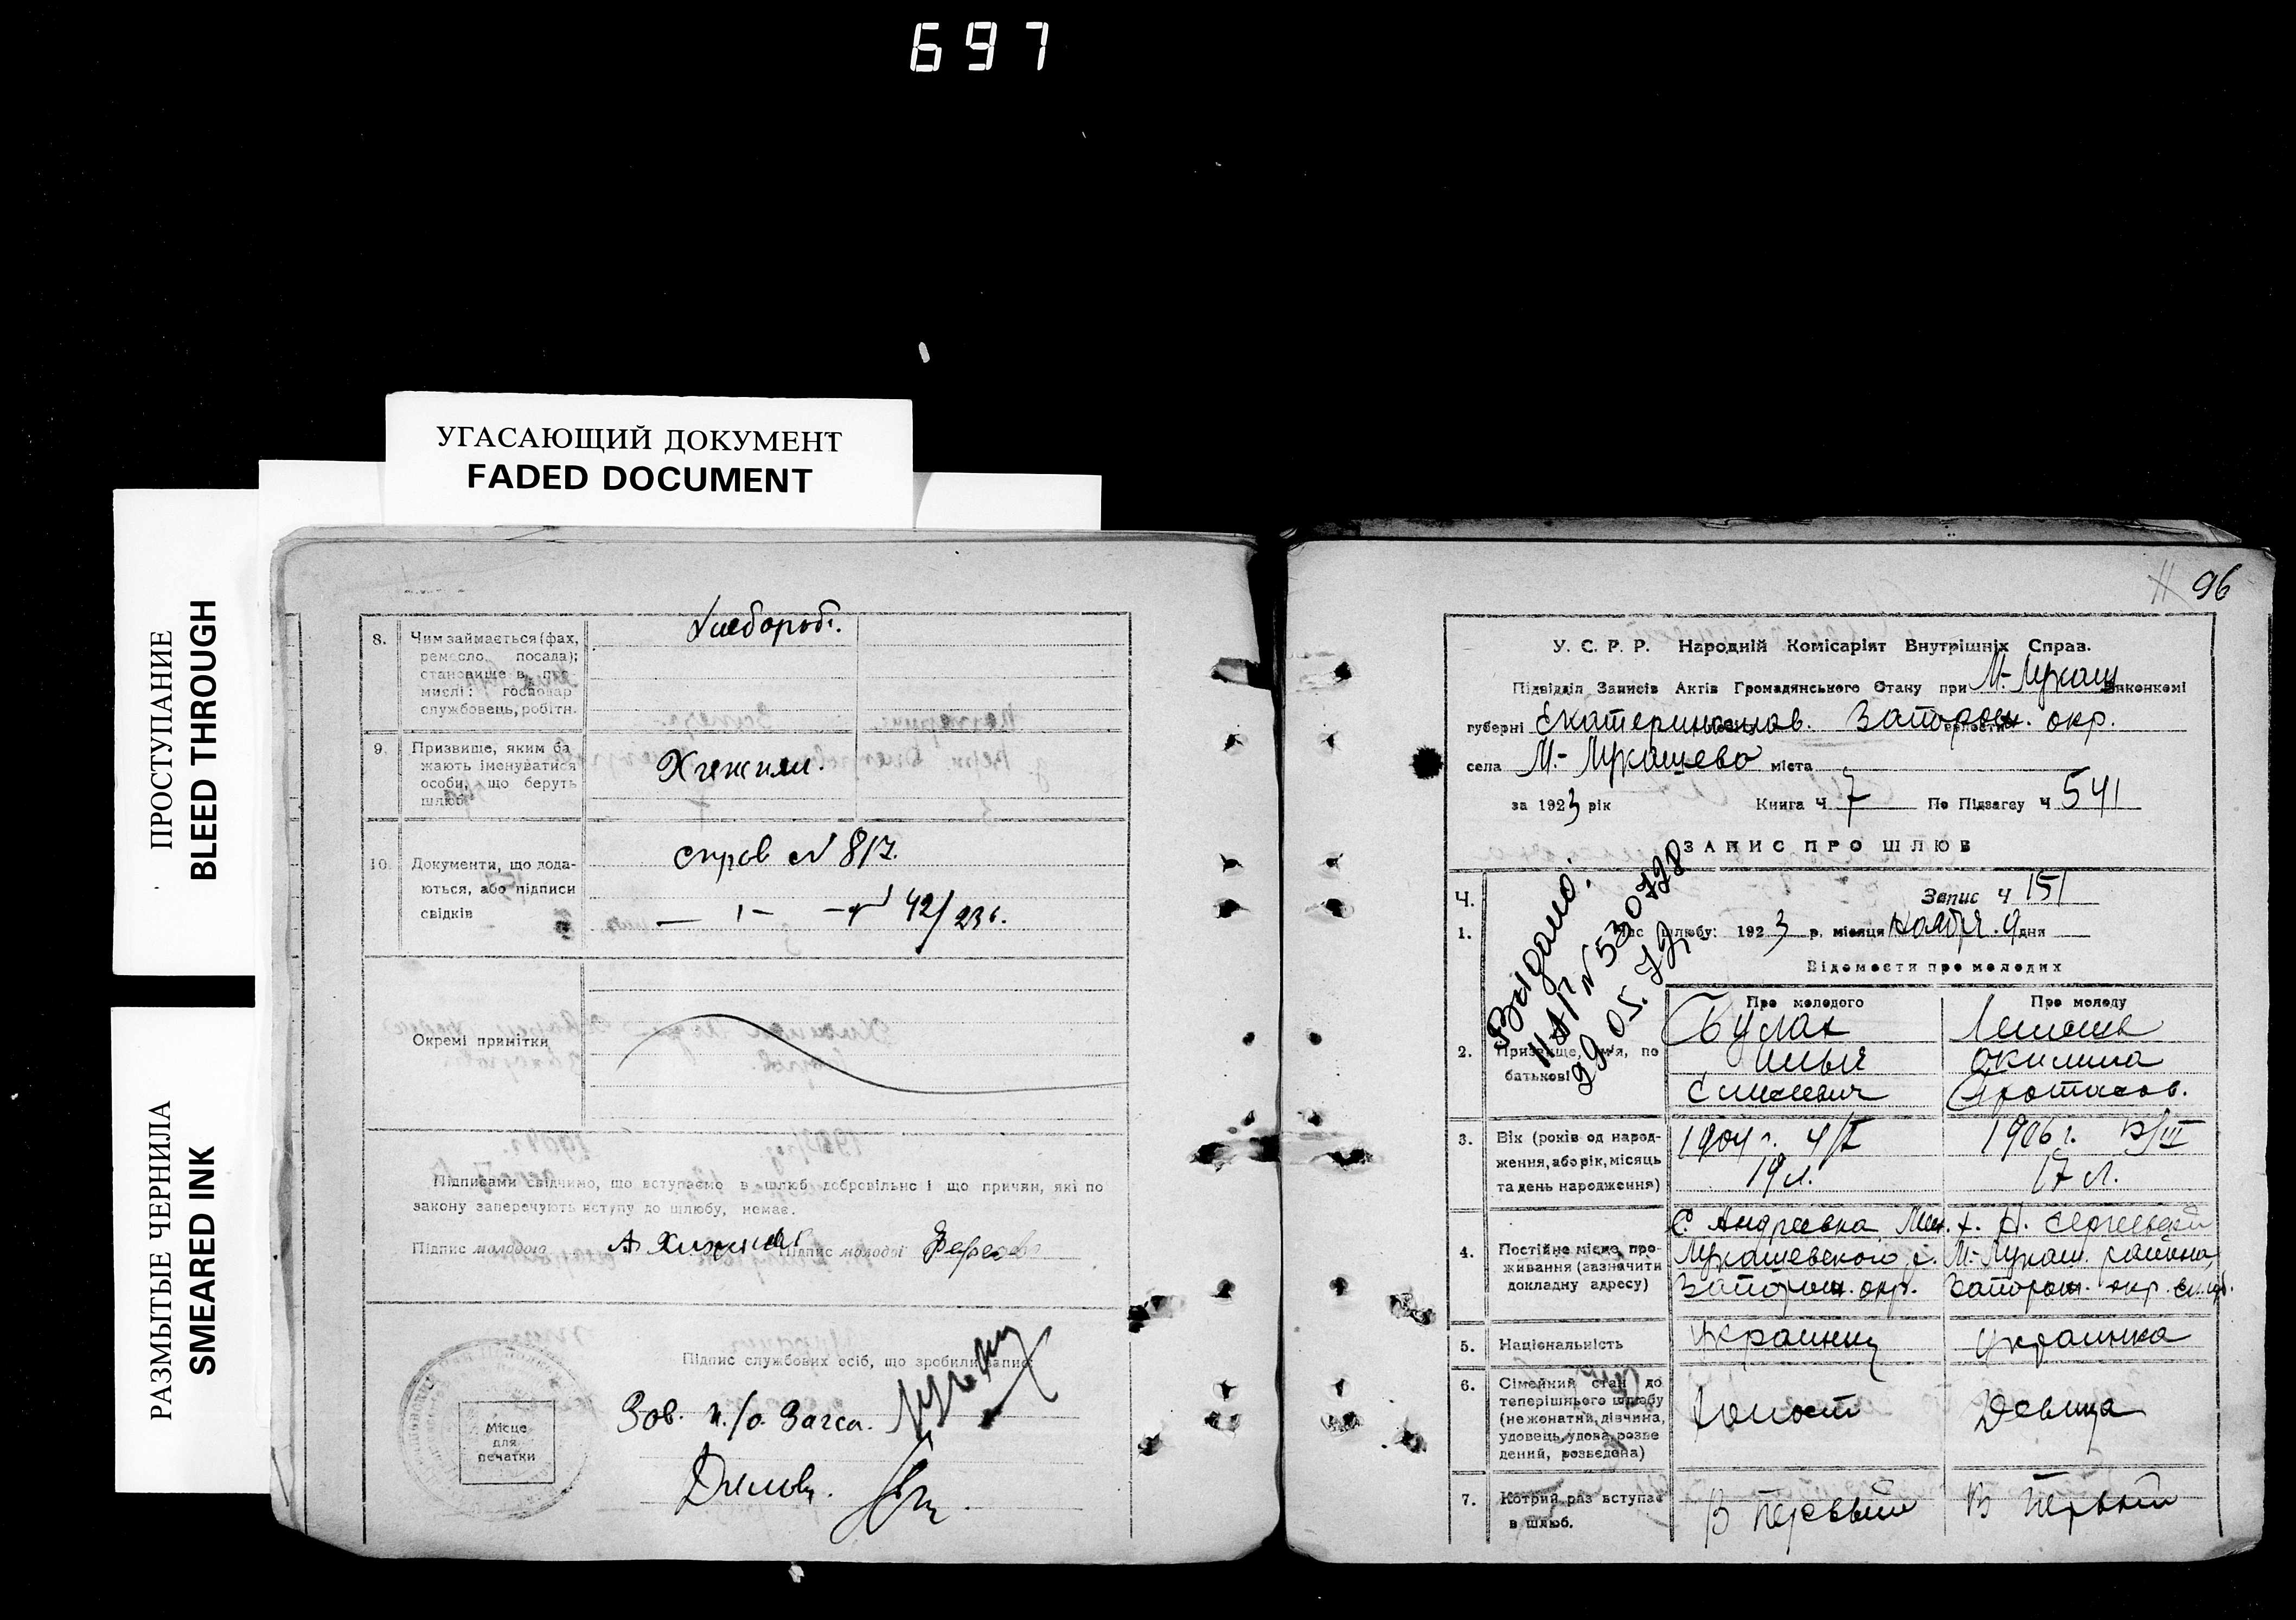 697
УГАСАЮЩИЙ ДОКУМЕНТ
FADED DOCUMENT
ПРОСТУПАНИЕ
BLEED THROUGH
РАЗМЫТЫЕ ЧЕРНИЛА
SMEARED INK
8. Чим займається (фах,
ремесло, посада);
становище в про-
мислі: господар
службовець, робітн.
Хлебороб.
9. Призвище, яким ба
жають іменуватися
особи, що беруть
шлюб
10. Документи, що дода-
ються, або підписи
свідків
справ № 817.
— 1 — № 42/23 г.
Окремі примітки
Підписами свідчимо, що вступаємо в шлюб добровільно і що причин, які по
закону заперечують вступу до шлюбу, немає.
Підпис молодого
Підпис молодої
Підпис службових осіб, що зробили запис
Зав. п./о. Загса.
Місце
для
печатки
Делов.
96
У. С. Р. Р. Народній Комісаріят Внутрішніх Справ.
Підвідділ Записів Актів Громадянського Стану при М.-Лукаш Виконкомі
губерні Екатеринослав. Запорож. окр.
села М.-Лукашево міста
за 1923 рік Книга Ч. 7 По Підзагсу Ч 541
ЗАПИС ПРО ШЛЮБ
Ч. Запис Ч 151
1. Час шлюбу: 1923 р. місяця Ноября 9 дня
Відомости про молодих
Видано:
№ 530728
29.05.72
Про молодого Про молоду
2. Призвище, ім'я, по
батькові
Булах
Илья
Елисеевич
Акилина
Протасов.
3. Вік (років од народ-
ження, або рік, місяць
та день народження)
1904 г. 4/I
19 л.
1906 г.
17 л.
4. Постійне місце про-
живання (зазначити
докладну адресу)
С. Андреевка Мих.
Лукашевского р.
Запорож. окр.
х. Н. Сергеевский
М.-Лукаш. района,
Запорож. окр.
5. Національність Украинец Украинка
6. Сімейний стан до
теперішнього шлюбу
(не жонатий, дівчина,
удовець, удова, розве
дений, розведена)
Холост Девица
7. Котрий раз вступає
в шлюб.
В первый В первый